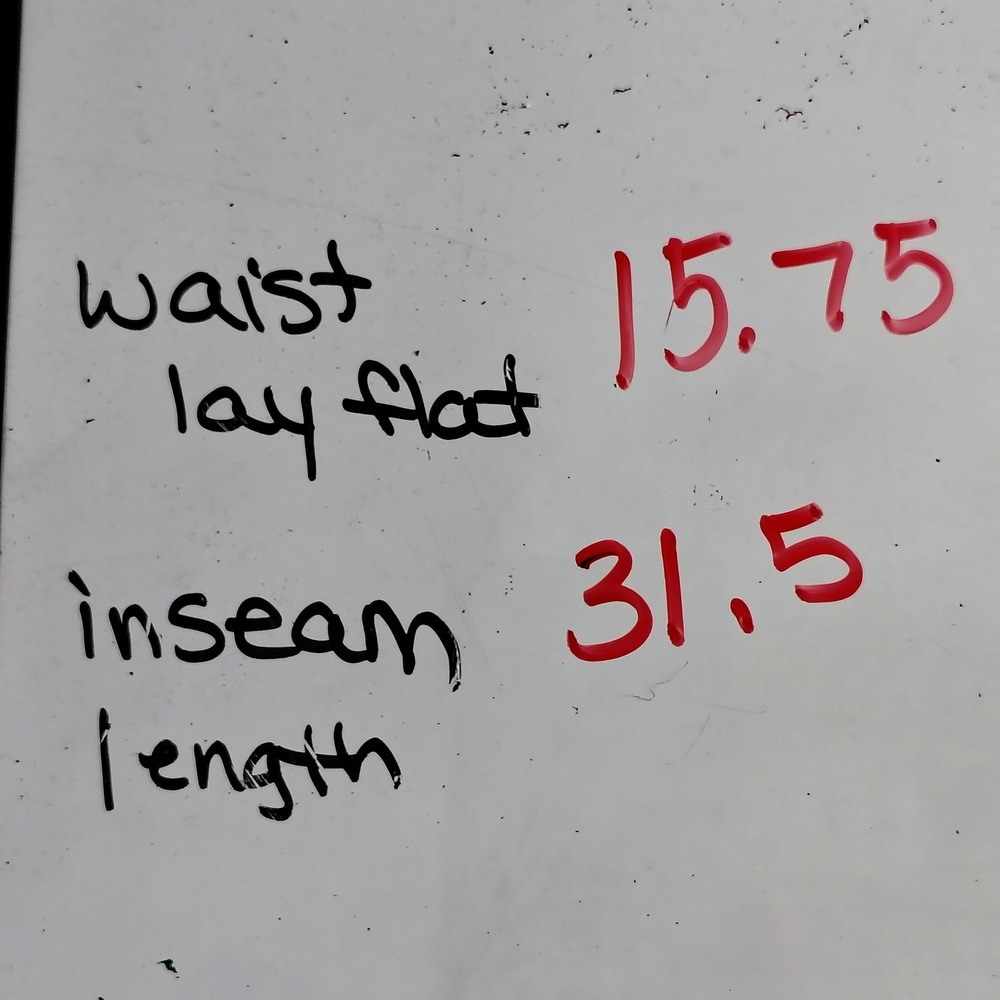 waist 15.75
lay flat
inseam 31.5
length